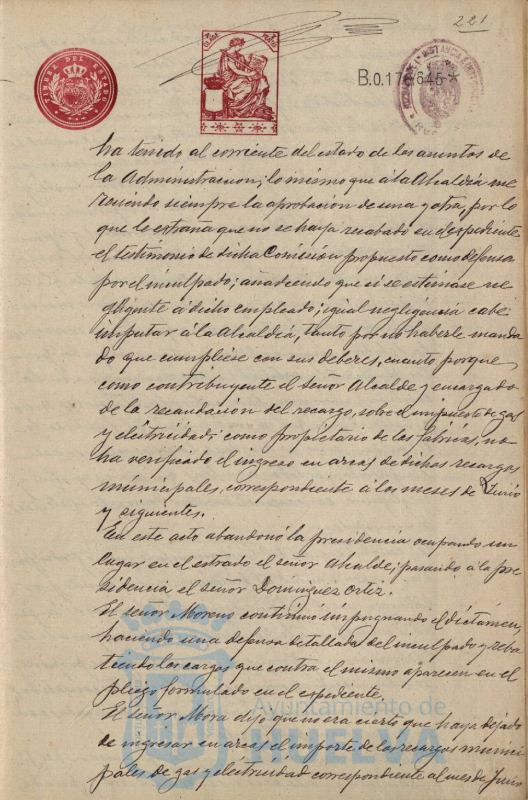 221
TIMBRE DEL ESTADO
B.0.174.645 *
ha tenido al corriente del estado de los asuntos de
la Administracion, lo mismo que á la Alcaldía me
reciendo siempre la aprobacion de una y otra, por lo
que le estraña que no se haya recabado en el espediente
el testimonio de dicha Comision propuesto como defensa
por el inculpado; añadiendo que si se estimase ne
gligente á dicho empleado, igual negligencia cabe
imputar á la Alcaldía, tanto por no haberle manda
do que cumpliese con sus deberes, cuanto porque
como contribuyente el señor Alcalde y encargado
de la recaudación del recargo, sobre el impuesto de gas
y eléctricidad, como propietario de las fábricas, no
ha verificado el ingreso en arcas de dichos recargos
municipales, correspondiente á los meses de Junio
y siguientes.
En este acto abandonó la presidencia ocupando un
lugar en el estrado el señor Alcalde, pasando á la pre
sidencia el señor Dominguez Ortiz.
El señor Moreno continuó impugnando el dictámen,
haciendo una defensa detallada del inculpado y reba
tiendo los cargos que contra el mismo aparecen en el
pliego formulado en el espediente.
El señor Mora dijo que no era cierto que haya dejado
de ingresar en arcas el importe de los recargos munici
pales de gas y electricidad correspondiente al mes de Junio
Ayuntamiento de
HUELVA